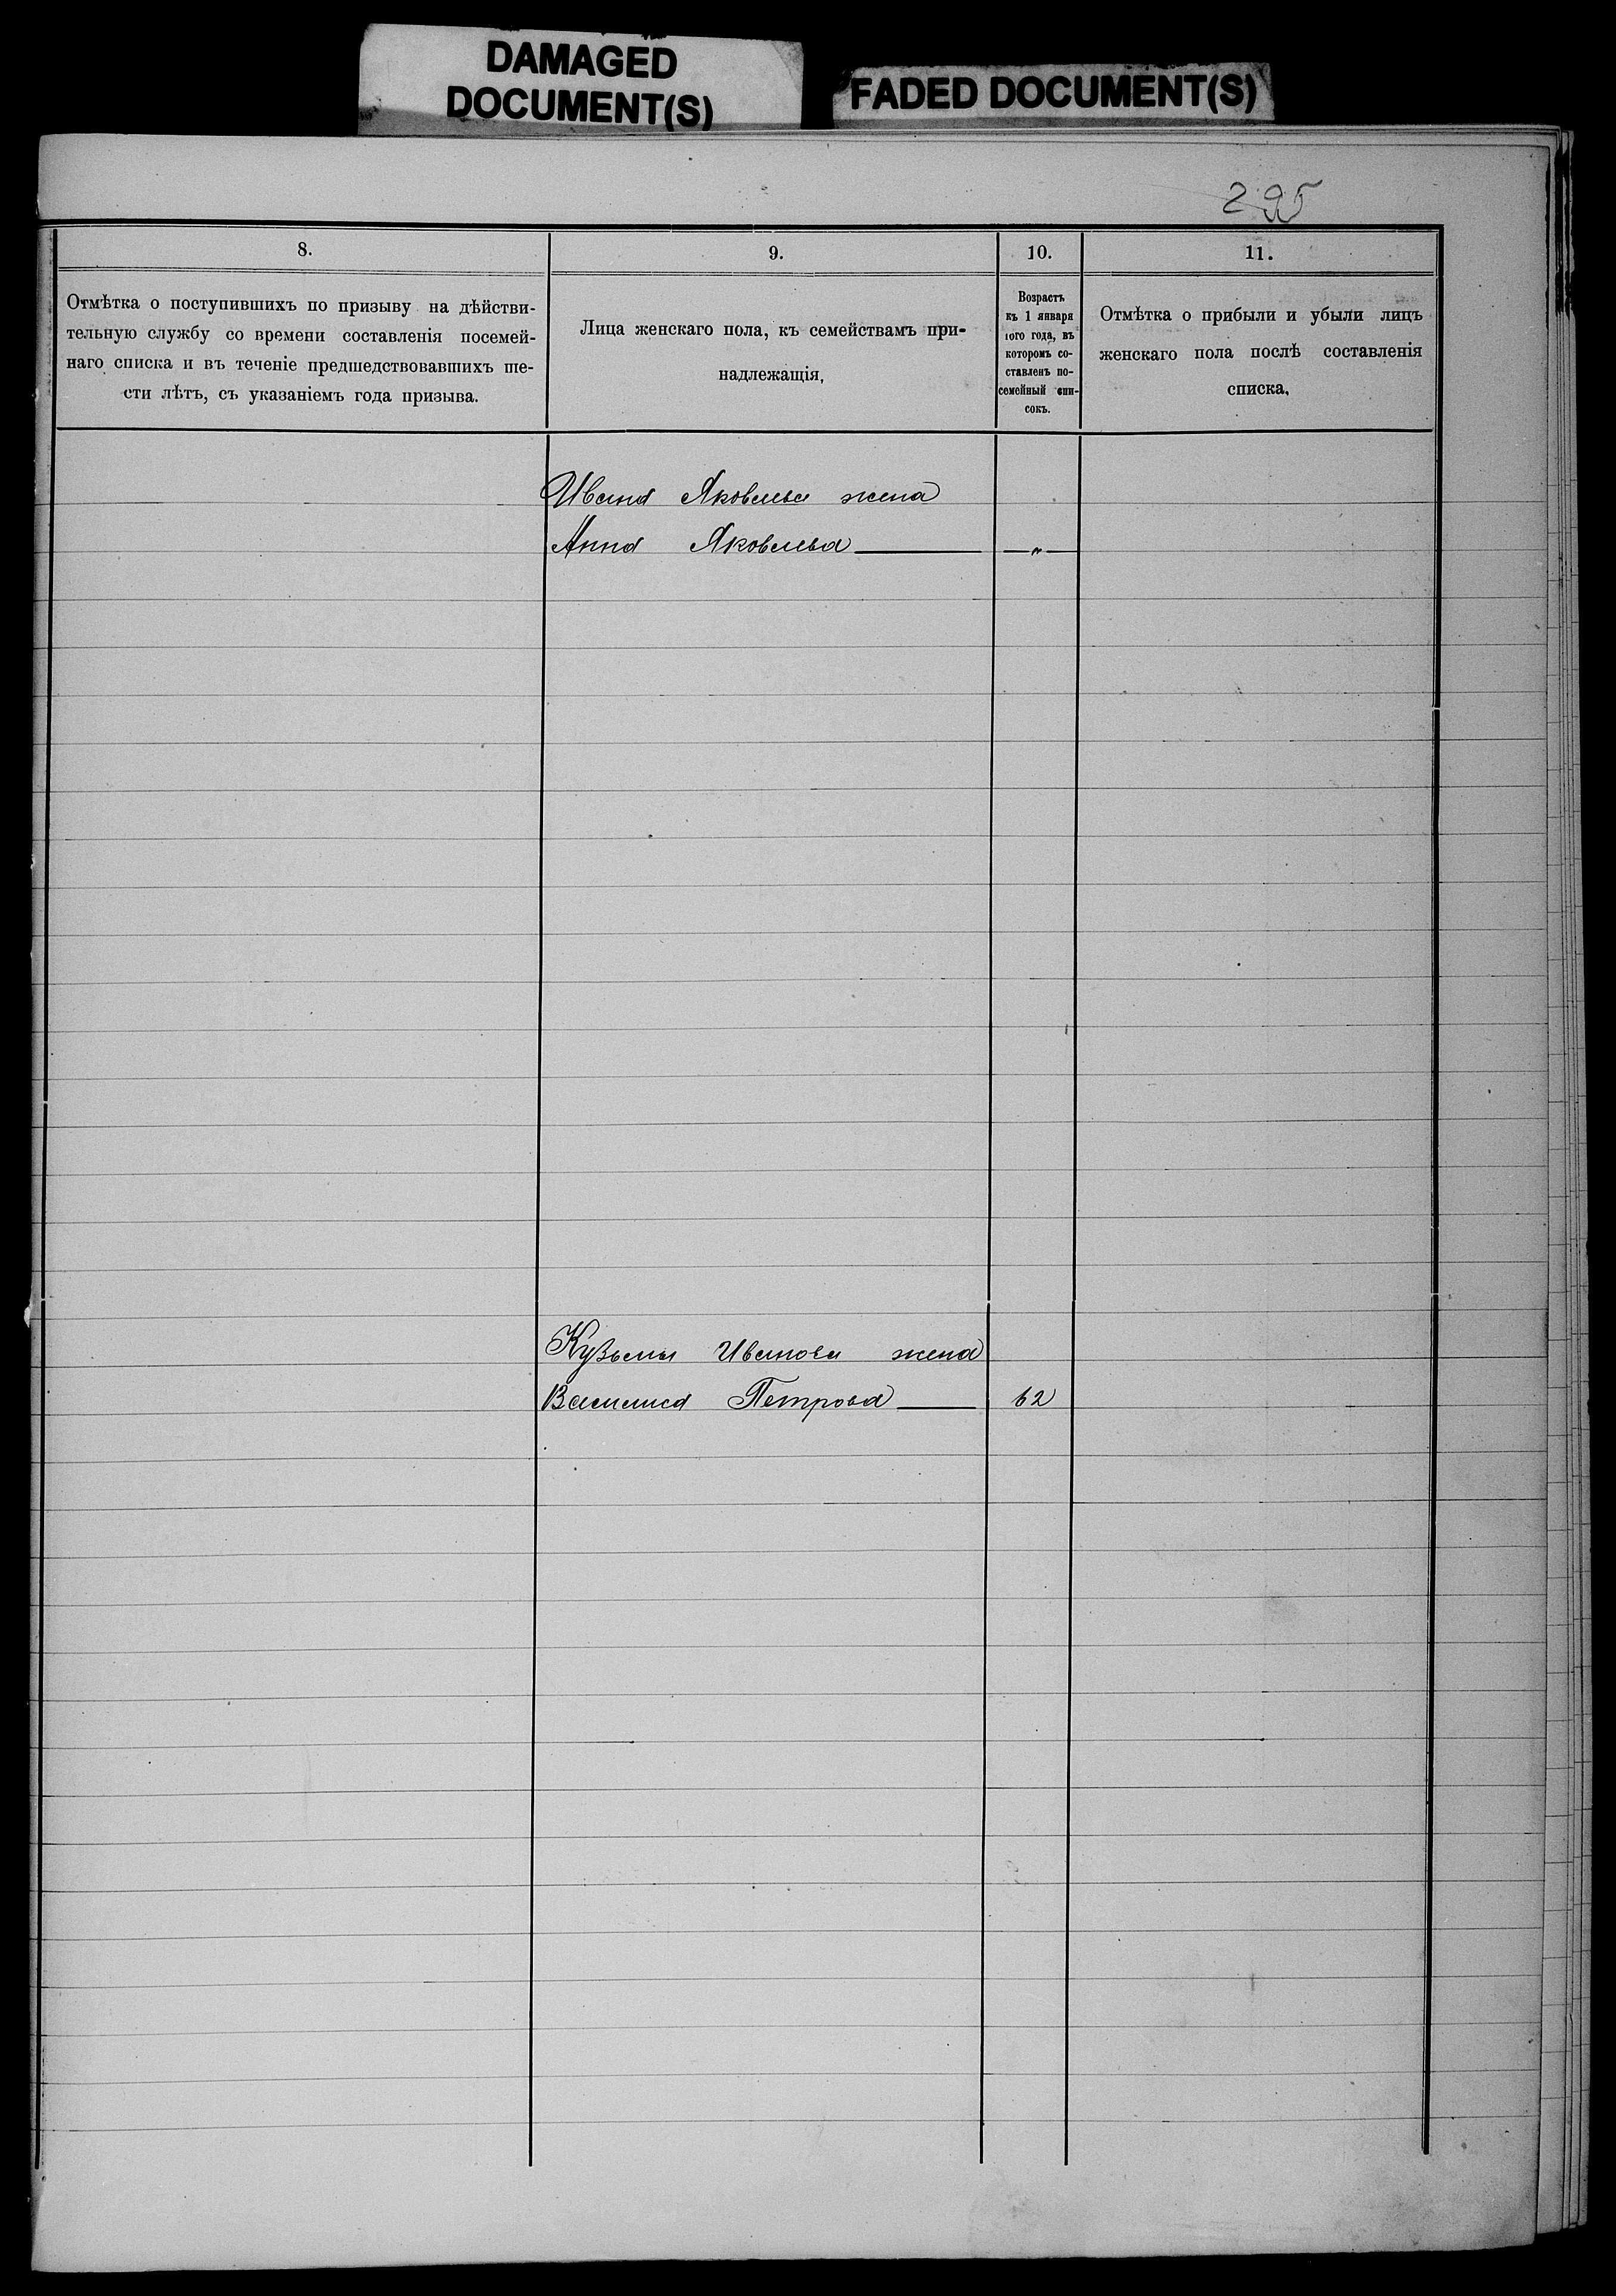 DAMAGED
DOCUMENT(S)
FADED DOCUMENT(S)
295
8.
Отмѣтка о поступившихъ по призыву на дѣйстви-
тельную службу со времени составленія посемей-
наго списка и въ теченіе предшедствовавшихъ ше-
сти лѣтъ, съ указаніемъ года призыва.
9.
Лица женскаго пола, къ семействамъ при-
надлежащія,
10.
Возрастъ
къ 1 января
того года, въ
которомъ со-
ставленъ по-
семейный спи-
сокъ.
11.
Отмѣтка о прибыли и убыли лицъ
женскаго пола послѣ составленія
списка.
Ивана Яковлева жена
Анна Яковлева — „ —
Кузьмы Иванова жена
Василиса Петрова — 62